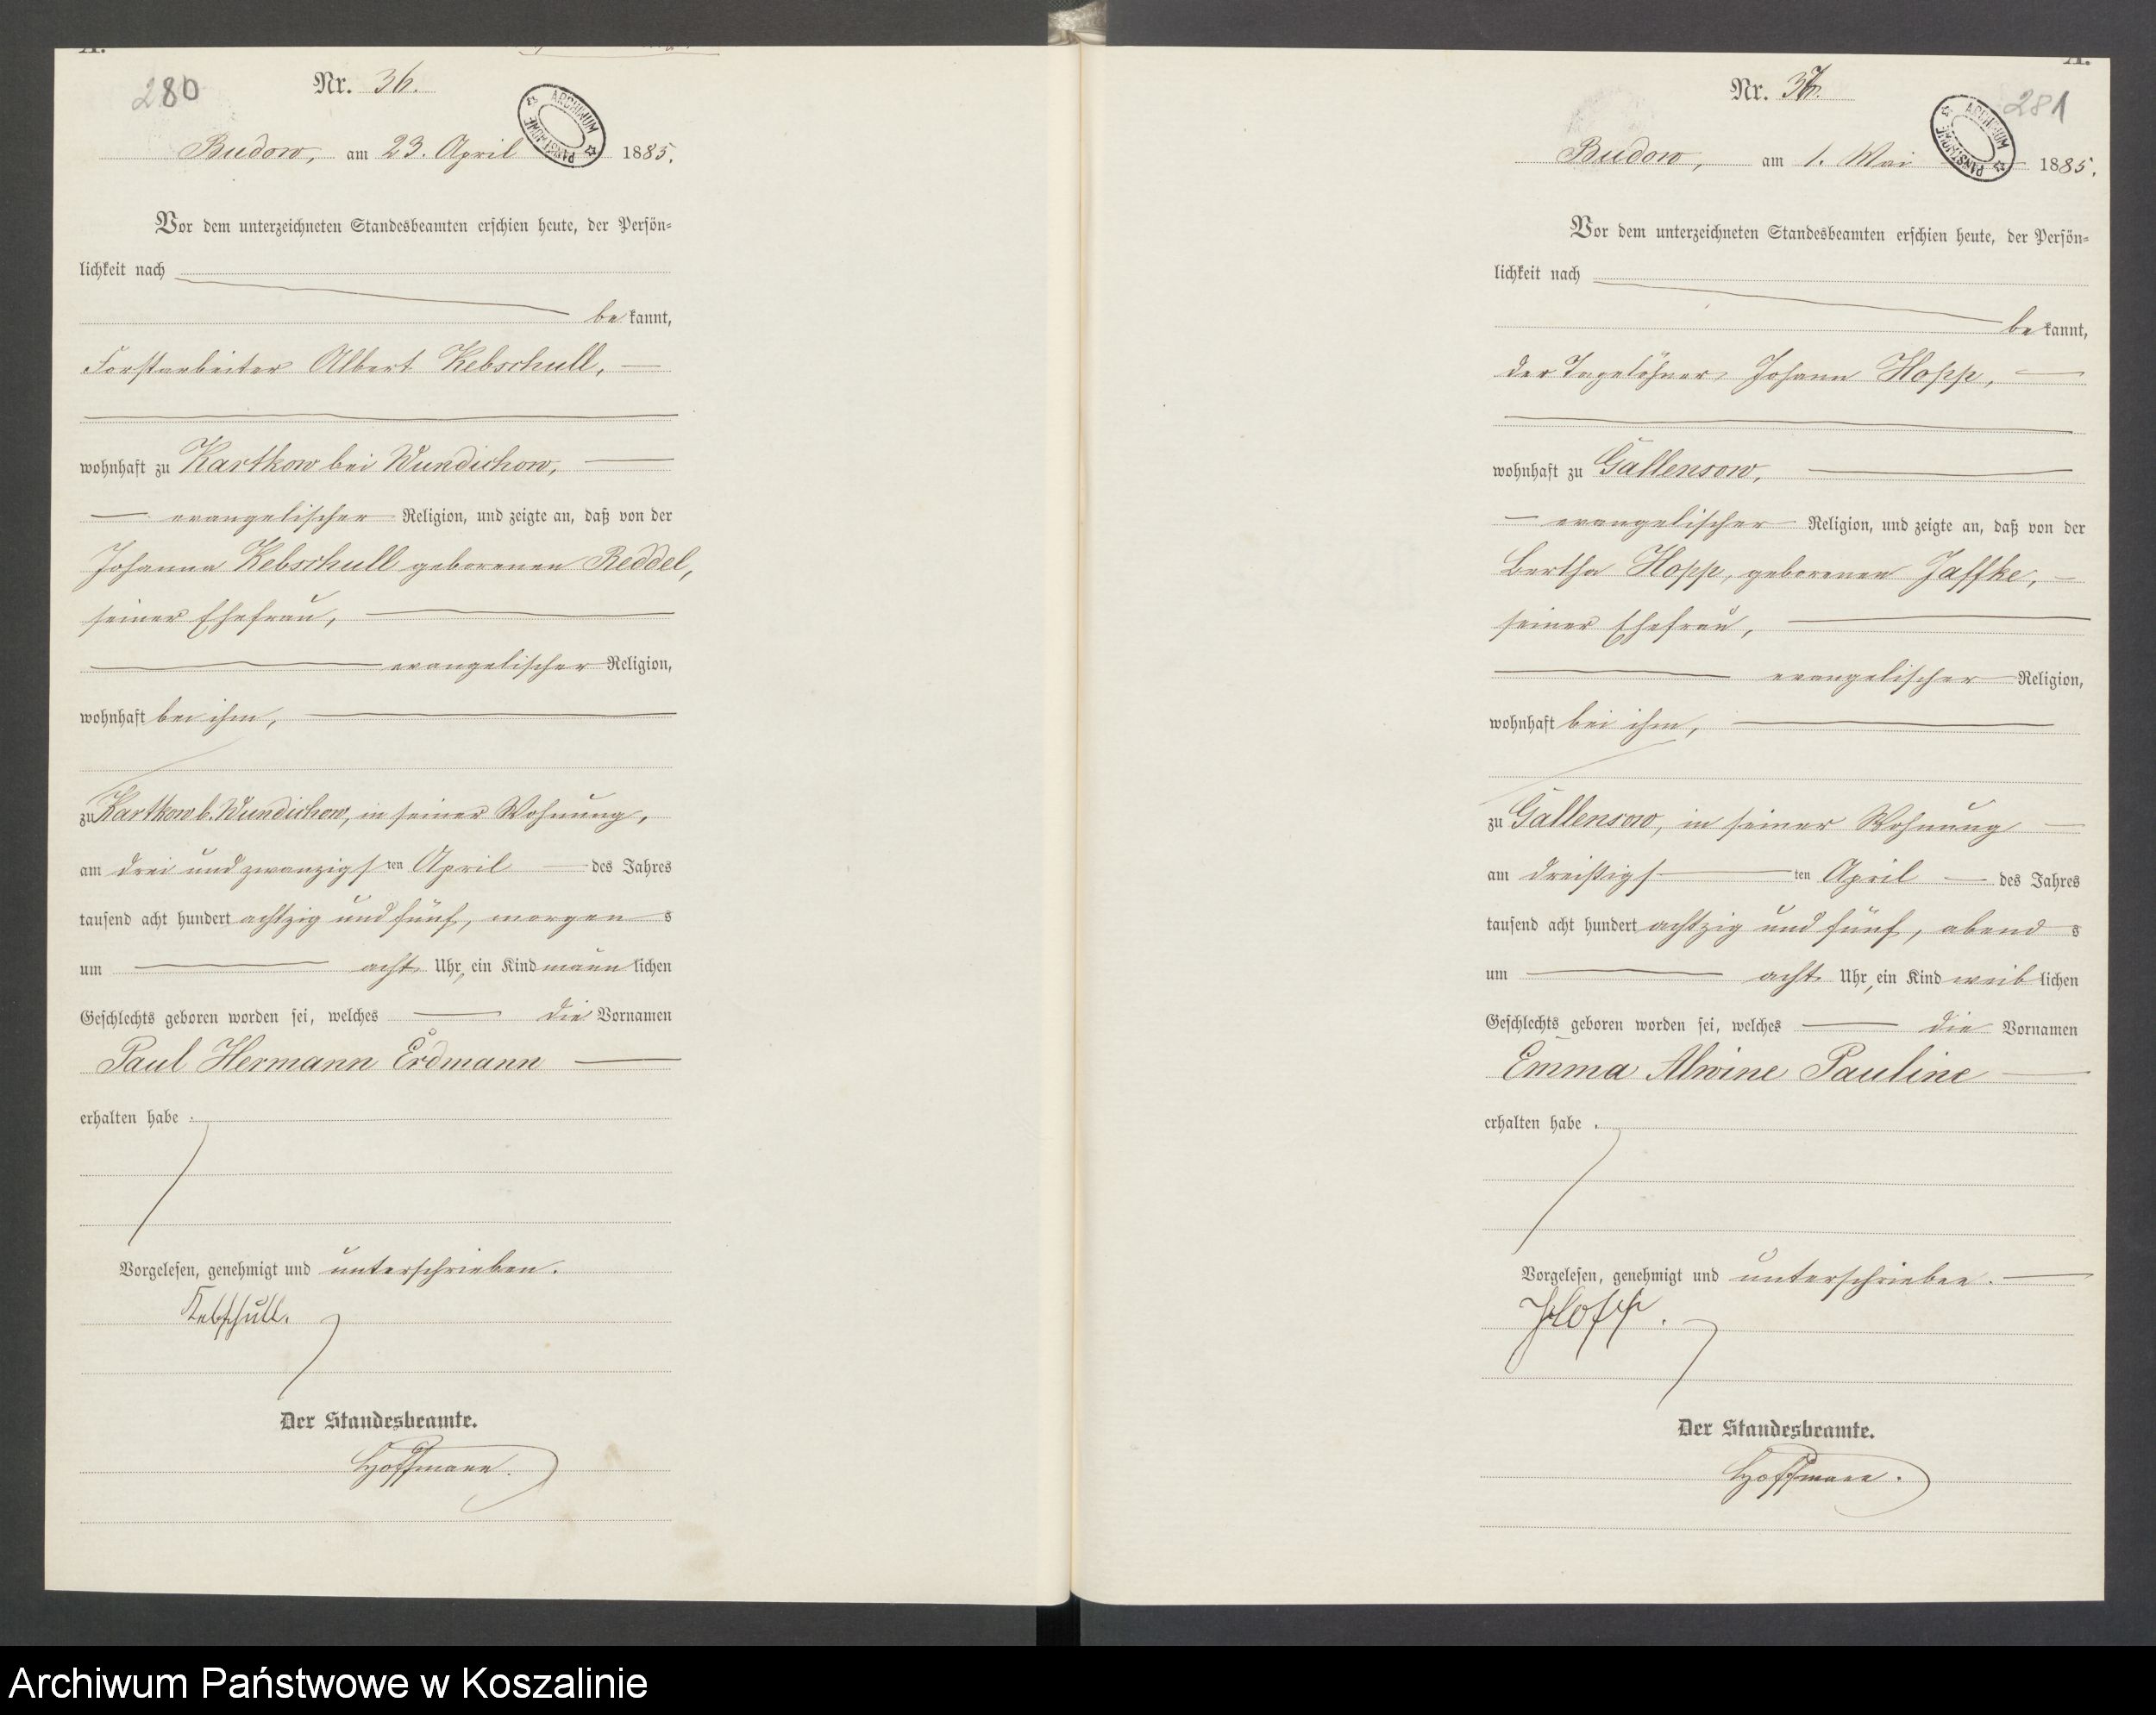 280
Nr. 36.
ARCHIWUM PAŃSTWOWE
Budow, am 23. April 1885.
Vor dem unterzeichneten Standesbeamten erschien heute, der Persön-
lichkeit nach
be kannt,
Forstarbeiter Albert Kebschull,
wohnhaft zu Kartkow bei Wundichow,
evangelischer Religion, und zeigte an, daß von der
Johanna Kebschull geborenen Reddel,
seiner Ehefrau,
evangelischer Religion,
wohnhaft bei ihm,
zu Kartkow b. Wundichow, in seiner Wohnung,
am drei und zwanzigs ten April des Jahres
tausend acht hundert achtzig und fünf, morgen s
um acht Uhr, ein Kind männ lichen
Geschlechts geboren worden sei, welches die Vornamen
Paul Hermann Erdmann
erhalten habe.
Vorgelesen, genehmigt und unterschrieben.
Kebschull.
Der Standesbeamte.
Hoffmann.
281
Nr. 37.
ARCHIWUM PAŃSTWOWE
Budow, am 1. Mai 1885.
Vor dem unterzeichneten Standesbeamten erschien heute, der Persön-
lichkeit nach
be kannt,
der Tagelöhner Johann Hopp,
wohnhaft zu Gallensow,
evangelischer Religion, und zeigte an, daß von der
Bertha Hopp, geborenen Jaffke,
seiner Ehefrau,
evangelischer Religion,
wohnhaft bei ihm,
zu Gallensow, in seiner Wohnung
am dreißigs ten April des Jahres
tausend acht hundert achtzig und fünf, abend s
um acht Uhr, ein Kind weib lichen
Geschlechts geboren worden sei, welches die Vornamen
Emma Alwine Pauline
erhalten habe.
Vorgelesen, genehmigt und unterschrieben.
Hopp.
Der Standesbeamte.
Hoffmann.
Archiwum Państwowe w Koszalinie